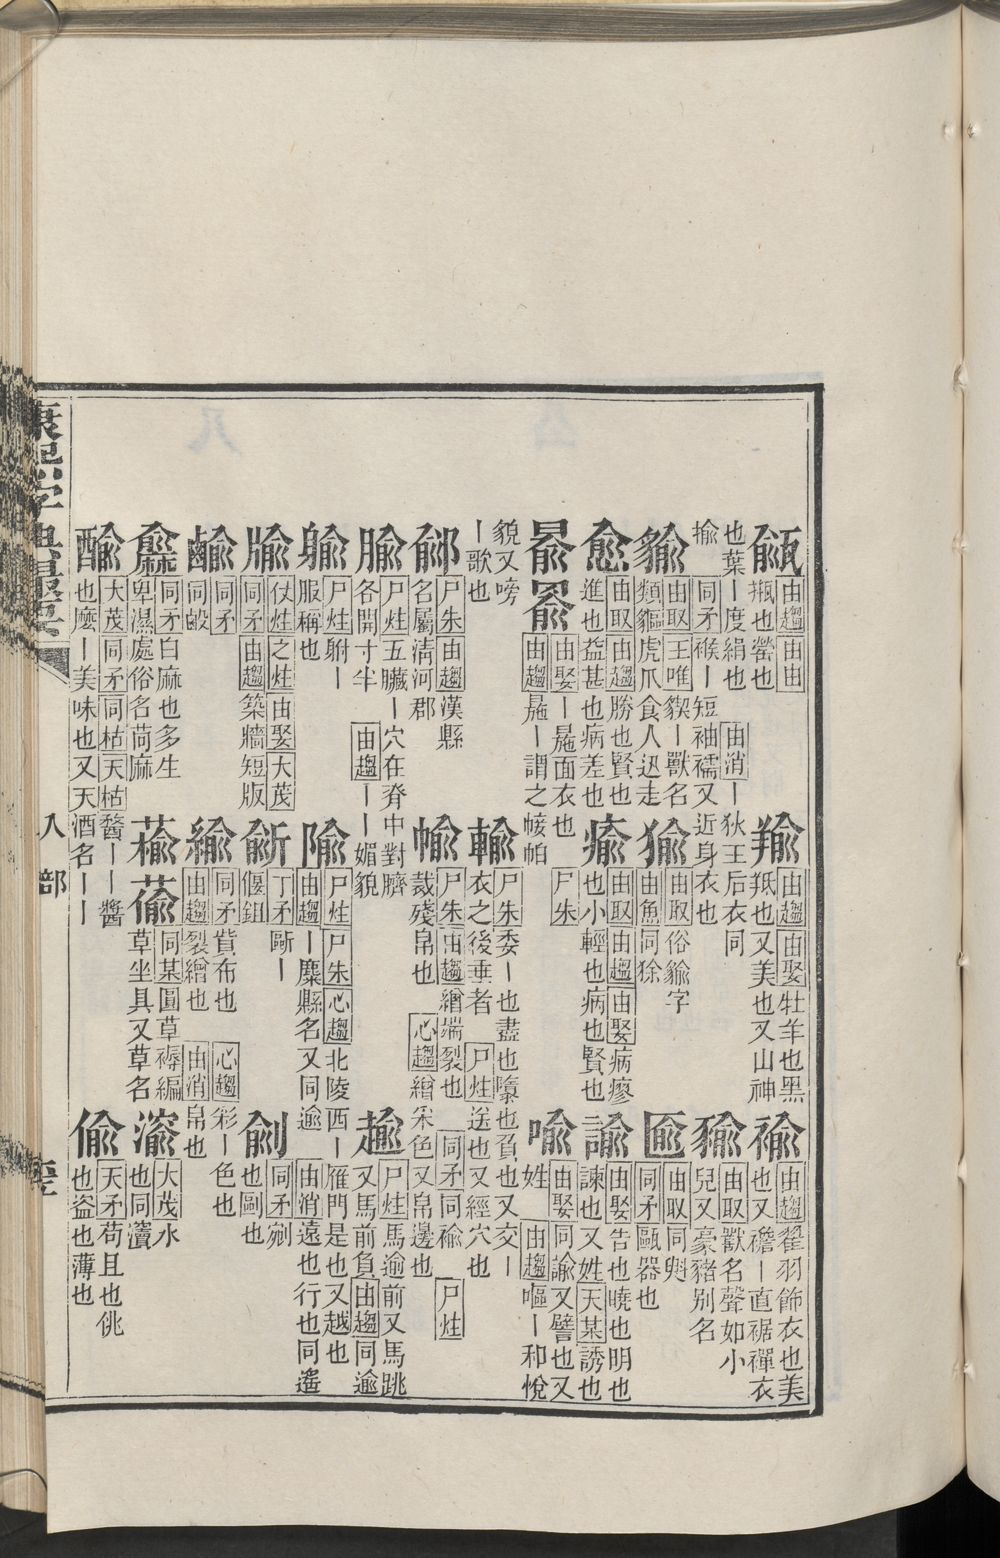 㼶 由趨 由由 瓶也罃也 羭 由趨 由娶 牡羊也黑羝也又美也又山神 褕 由趨 翟羽飾衣也美也又襜丨直裾襌衣
也葉丨度絹也 由消 丨狄王后衣同揄 同矛 䙈丨短袖襦又近身衣也
貐 由取 王唯 貏丨獸名類貙虎爪食人迅走 㺄 由取 俗貐字 由魚 同狳 貐 由取 獸名聲如小兒又豪豬别名
愈 由取 由趨 勝也賢也進也益甚也病差也 瘉 由取 由趨 由娶 病瘳也小輕也病也賢也 匬 由取 同㔱 同矛 甌器也
諭 由娶 告也曉也明也諫也又姓 天某 誘也
由娶 丨㫊面衣也 由趨 㫊丨謂之㡋帕 尸朱
喻 由娶 同諭又譬也又姓 由趨 嘔丨和悅貌又嗙丨歌也
輸 尸朱 委丨也盡也隳也負也又交丨衣之後垂者 尸炷 送也又經穴也
鄃 尸朱 由趨 漢縣名屬淸河郡 㡏 尸朱 由趨 繒端裂也裁殘帛也 心趨 繒采色又帛邊也 同矛 同褕 尸炷
腧 尸炷 五臟丨穴在脊中對臍各開寸半 由趨 丨丨媚貌 踰 尸炷 馬逾前又馬跳又馬前負 由趨 同逾
尸炷 躳丨服稱也 隃 尸炷 尸朱 心趨 北陵西丨雁門是也又越也 由趨 丨麋縣名又同逾 由消 遠也行也同遙
牏 仗炷 之炷 由娶 大茂 同矛 由趨 築牆短版 丁矛 斸丨偃鉏 同矛 剜也剾也
同矛 同㱿 緰 同矛 貲布也 心趨 彩丨色也 由趨 裂繒也 由消 帛也
同矛 白麻也多生卑濕處俗名茼麻 蕍 蕍 同某 圓草褥編草坐具又草名 渝 大茂 水也同瀆
酳 大茂 同矛 同枯 天枯 醔丨丨醬也麽丨美味也又天酒名丨丨 偷 天矛 苟且也佻也盜也薄也
康熙字典撮要
入部